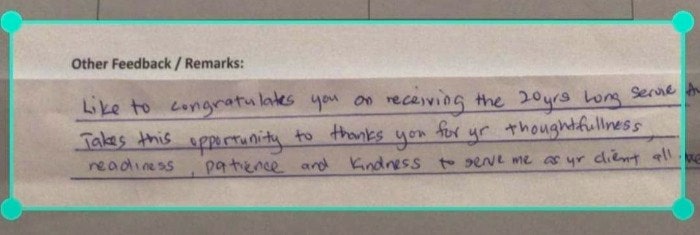 Other Feedback / Remarks:
Like to congratulates you on receiving the 20yrs Long Serve
Takes this opportunity to thanks you for yr thoughtfullness,
readiness, patience and kindness to serve me as yr client all